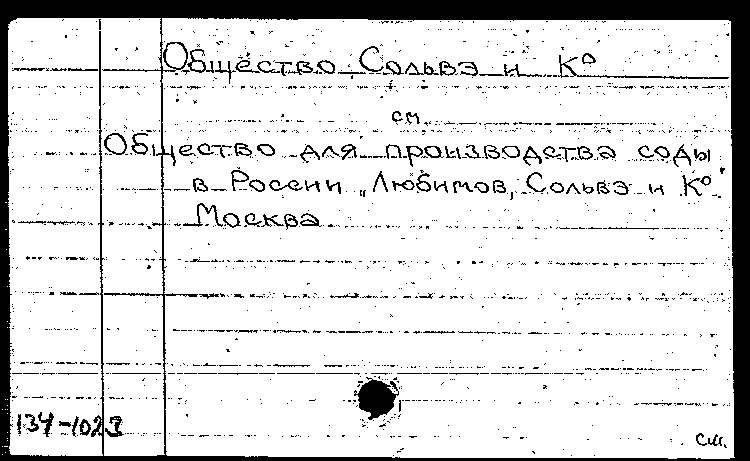 Общество Сольвэ и Кº
см.
Общество для производства соды
в России „Любимов, Сольвэ и Кº"
Москва
134-1023
см.